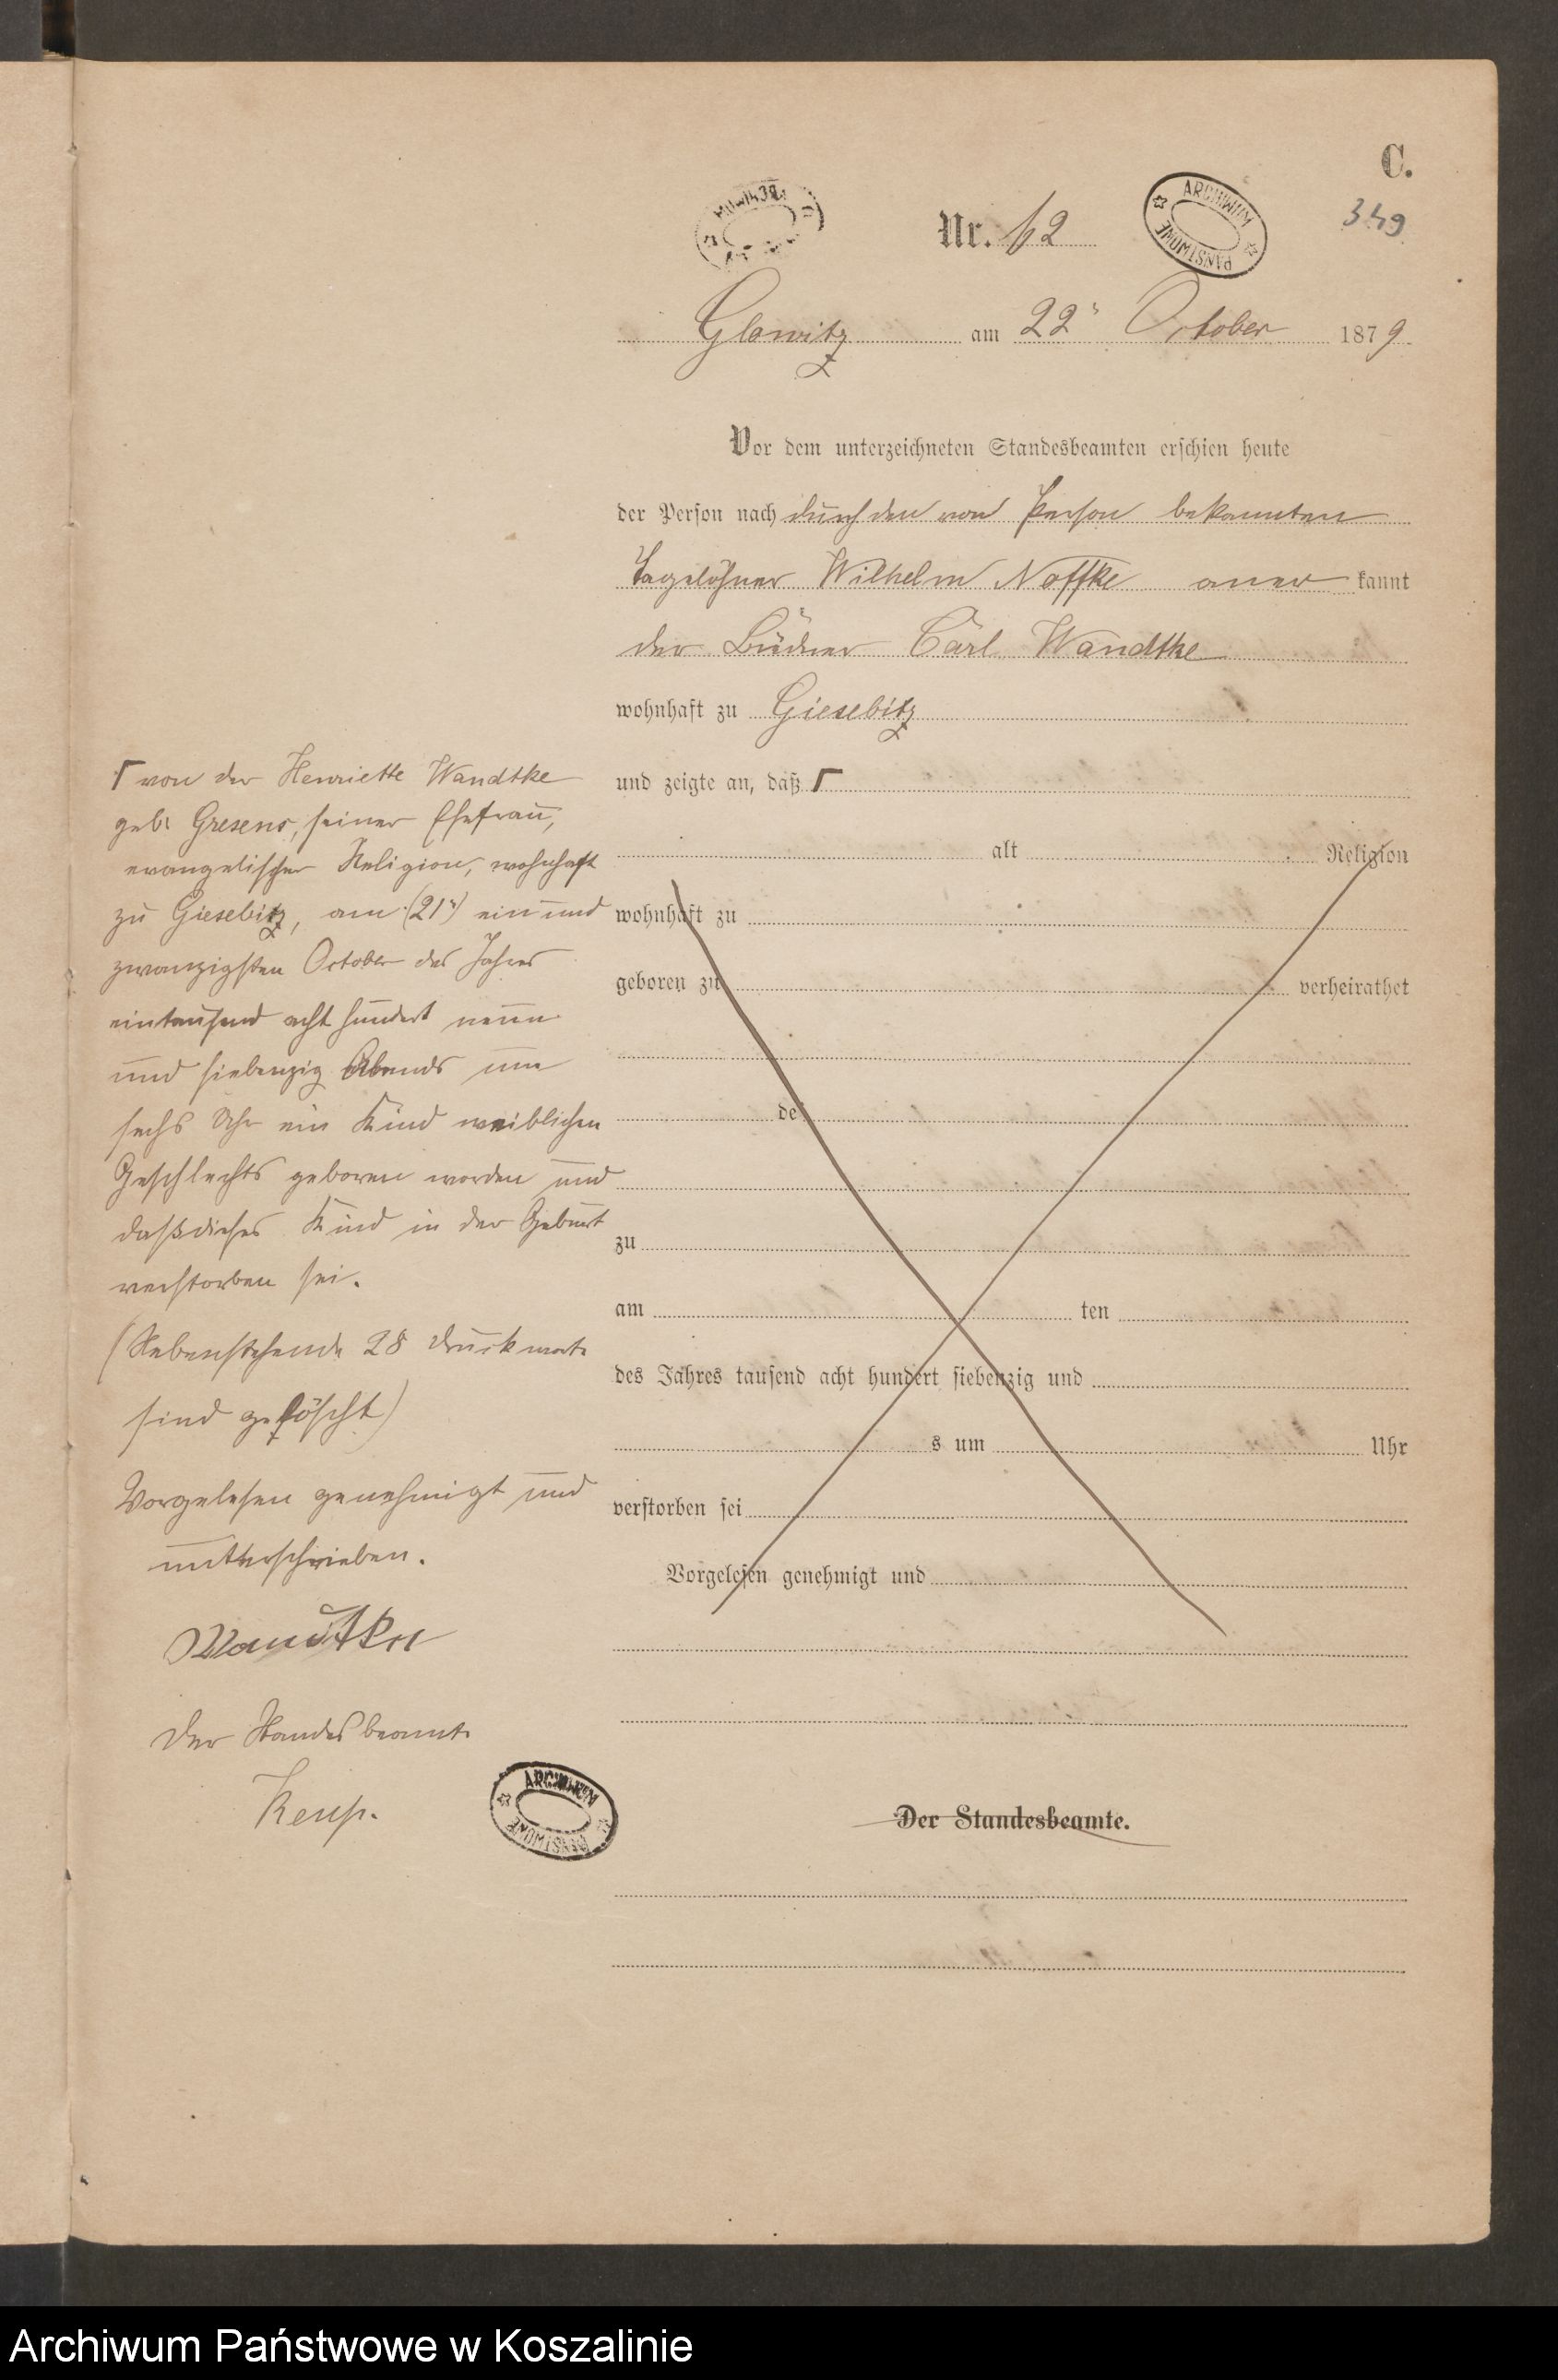 C.
349
Nr. 62
ARCHIWUM PAŃSTWOWE
Glowitz am 22ⁿ October 1879
Vor dem unterzeichneten Standesbeamten erschien heute
der Person nach durch den von Person bekannten
Tagelöhner Wilhelm Noffke aner kannt
der Büdner Carl Wandtke
wohnhaft zu Giesebitz
und zeigte an, daß Γ
alt Religion
wohnhaft zu
geboren zu verheirathet
de
zu
am ten
des Jahres tausend acht hundert siebenzig und
s um Uhr
verstorben sei
Vorgelesen genehmigt und
Der Standesbeamte.
Γ von der Henriette Wandtke
geb: Gresens, seiner Ehefrau,
evangelischer Religion, wohnhaft
zu Giesebitz, am (21ⁿ) ein und
zwanzigsten October des Jahres
eintausend acht hundert neun
und siebenzig Abends um
sechs Uhr ein Kind weiblichen
Geschlechts geboren worden und
daß dieses Kind in der Geburt
verstorben sei.
(Nebenstehende 28 Druckworte
sind gelöscht)
Vorgelesen genehmigt und
unterschrieben.
Wandtke
Der Standesbeamte
ARCHIWUM PAŃSTWOWE
Archiwum Państwowe w Koszalinie